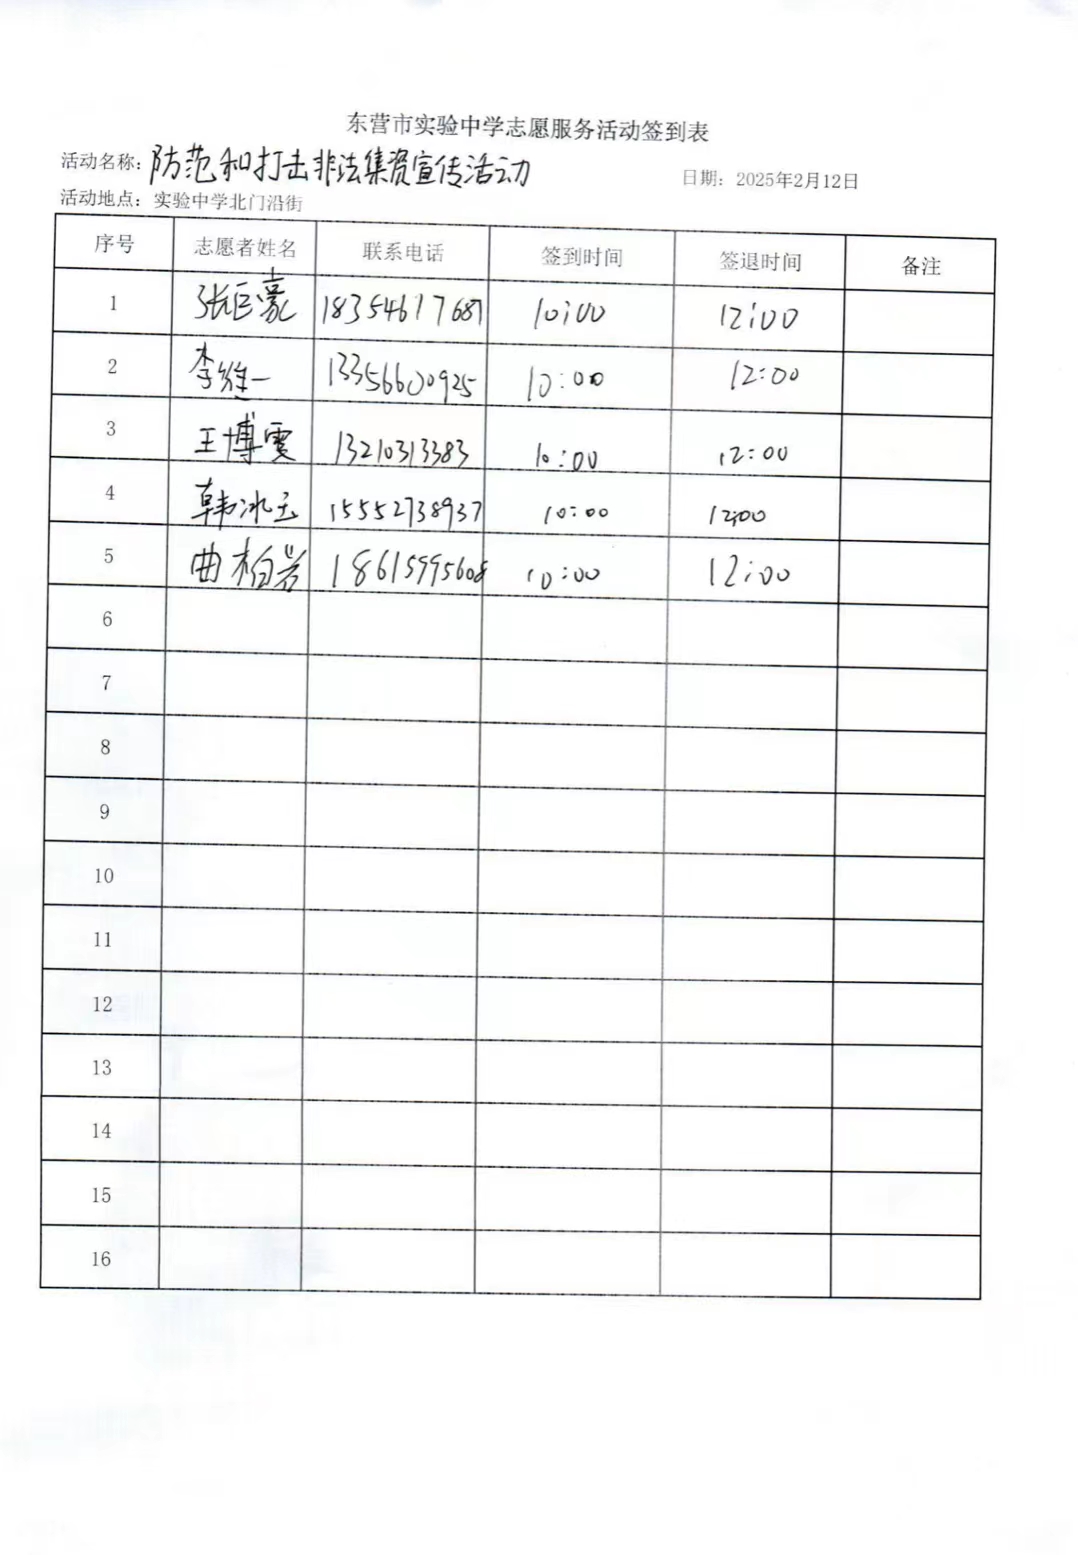 东营市实验中学志愿服务活动签到表
活动名称: 防范和打击非法集资宣传活动
日期: 2025年2月12日
活动地点: 实验中学北门沿街
序号 志愿者姓名 联系电话 签到时间 签退时间 备注
1 张巨豪 18354617687 10:00 12:00
2 李继一 13356600925 10:00 12:00
3 王博雯 13210313383 10:00 12:00
4 韩冰玉 15552738937 10:00 12:00
5 曲柏岩 18615995608 10:00 12:00
6
7
8
9
10
11
12
13
14
15
16